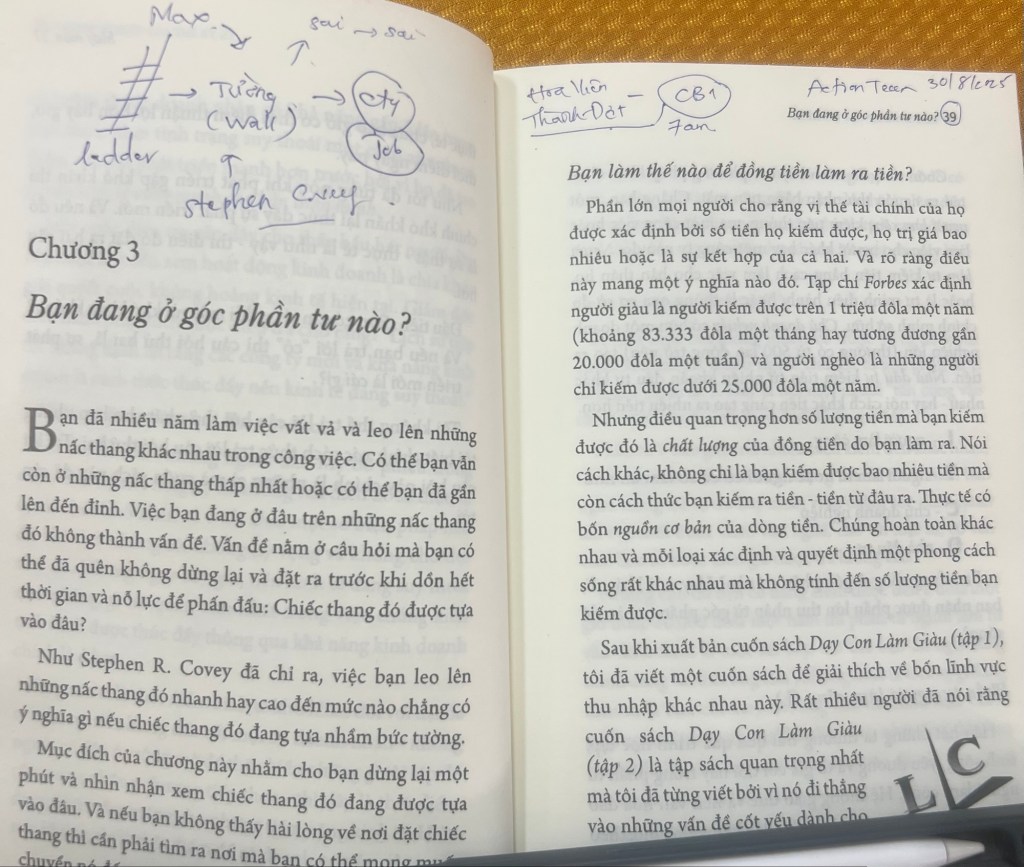 Max.
sai → sai
→ Tường → Cty
(wall)
Job
ladder
stephen Covey
Chương 3
Bạn đang ở góc phần tư nào?
Bạn đã nhiều năm làm việc vất vả và leo lên những
nấc thang khác nhau trong công việc. Có thể bạn vẫn
còn ở những nấc thang thấp nhất hoặc có thể bạn đã gần
lên đến đỉnh. Việc bạn đang ở đâu trên những nấc thang
đó không thành vấn đề. Vấn đề nằm ở câu hỏi mà bạn có
thể đã quên không dừng lại và đặt ra trước khi dồn hết
thời gian và nỗ lực để phấn đấu: Chiếc thang đó được tựa
vào đâu?
Như Stephen R. Covey đã chỉ ra, việc bạn leo lên
những nấc thang đó nhanh hay cao đến mức nào chẳng có
ý nghĩa gì nếu chiếc thang đó đang tựa nhầm bức tường.
Mục đích của chương này nhằm cho bạn dừng lại một
phút và nhìn nhận xem chiếc thang đó đang được tựa
vào đâu. Và nếu bạn không thấy hài lòng về nơi đặt chiếc
thang thì cần phải tìm ra nơi mà bạn có thể mong
Hoa Viên – CB1
Thành Đạt
7am
Action Team 30/8/2025
Bạn đang ở góc phần tư nào? 39
Bạn làm thế nào để đồng tiền làm ra tiền?
Phần lớn mọi người cho rằng vị thế tài chính của họ
được xác định bởi số tiền họ kiếm được, họ trị giá bao
nhiêu hoặc là sự kết hợp của cả hai. Và rõ ràng điều
này mang một ý nghĩa nào đó. Tạp chí Forbes xác định
người giàu là người kiếm được trên 1 triệu đôla một năm
(khoảng 83.333 đôla một tháng hay tương đương gần
20.000 đôla một tuần) và người nghèo là những người
chỉ kiếm được dưới 25.000 đôla một năm.
Nhưng điều quan trọng hơn số lượng tiền mà bạn kiếm
được đó là chất lượng của đồng tiền do bạn làm ra. Nói
cách khác, không chỉ là bạn kiếm được bao nhiêu tiền mà
còn cách thức bạn kiếm ra tiền - tiền từ đâu ra. Thực tế có
bốn nguồn cơ bản của dòng tiền. Chúng hoàn toàn khác
nhau và mỗi loại xác định và quyết định một phong cách
sống rất khác nhau mà không tính đến số lượng tiền bạn
kiếm được.
Sau khi xuất bản cuốn sách Dạy Con Làm Giàu (tập 1),
tôi đã viết một cuốn sách để giải thích về bốn lĩnh vực
thu nhập khác nhau này. Rất nhiều người đã nói rằng
cuốn sách Dạy Con Làm Giàu
(tập 2) là tập sách quan trọng nhất
mà tôi đã từng viết bởi vì nó đi thẳng
vào những vấn đề cốt yếu dành cho
L C